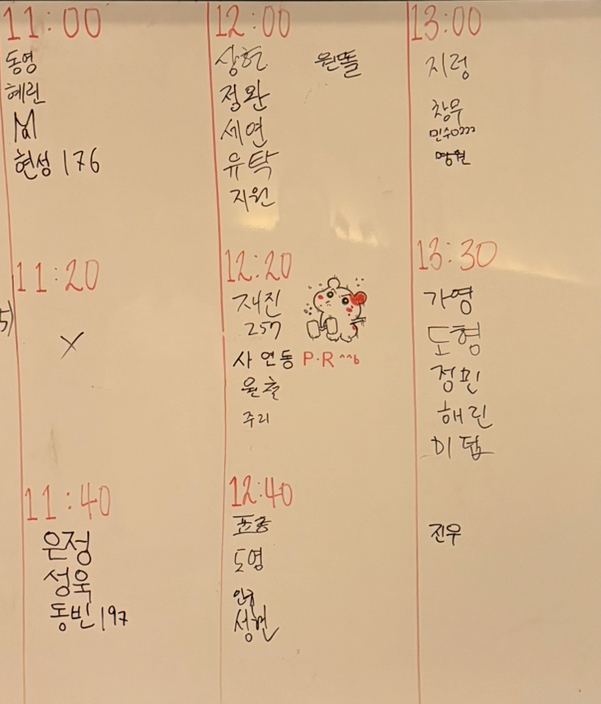 11:00
동영
혜린
M
현성 176
11:20
X
5)
11:40
은정
성욱
동빈 197
12:00
상헌
원똘
정완
세연
유탁
지원
12:20
재진
257
사연동 P·R ^^b
원철
주리
12:40
도영
성현
13:00
지령
창무
민수
13:30
가영
도형
정빈
해린
진우